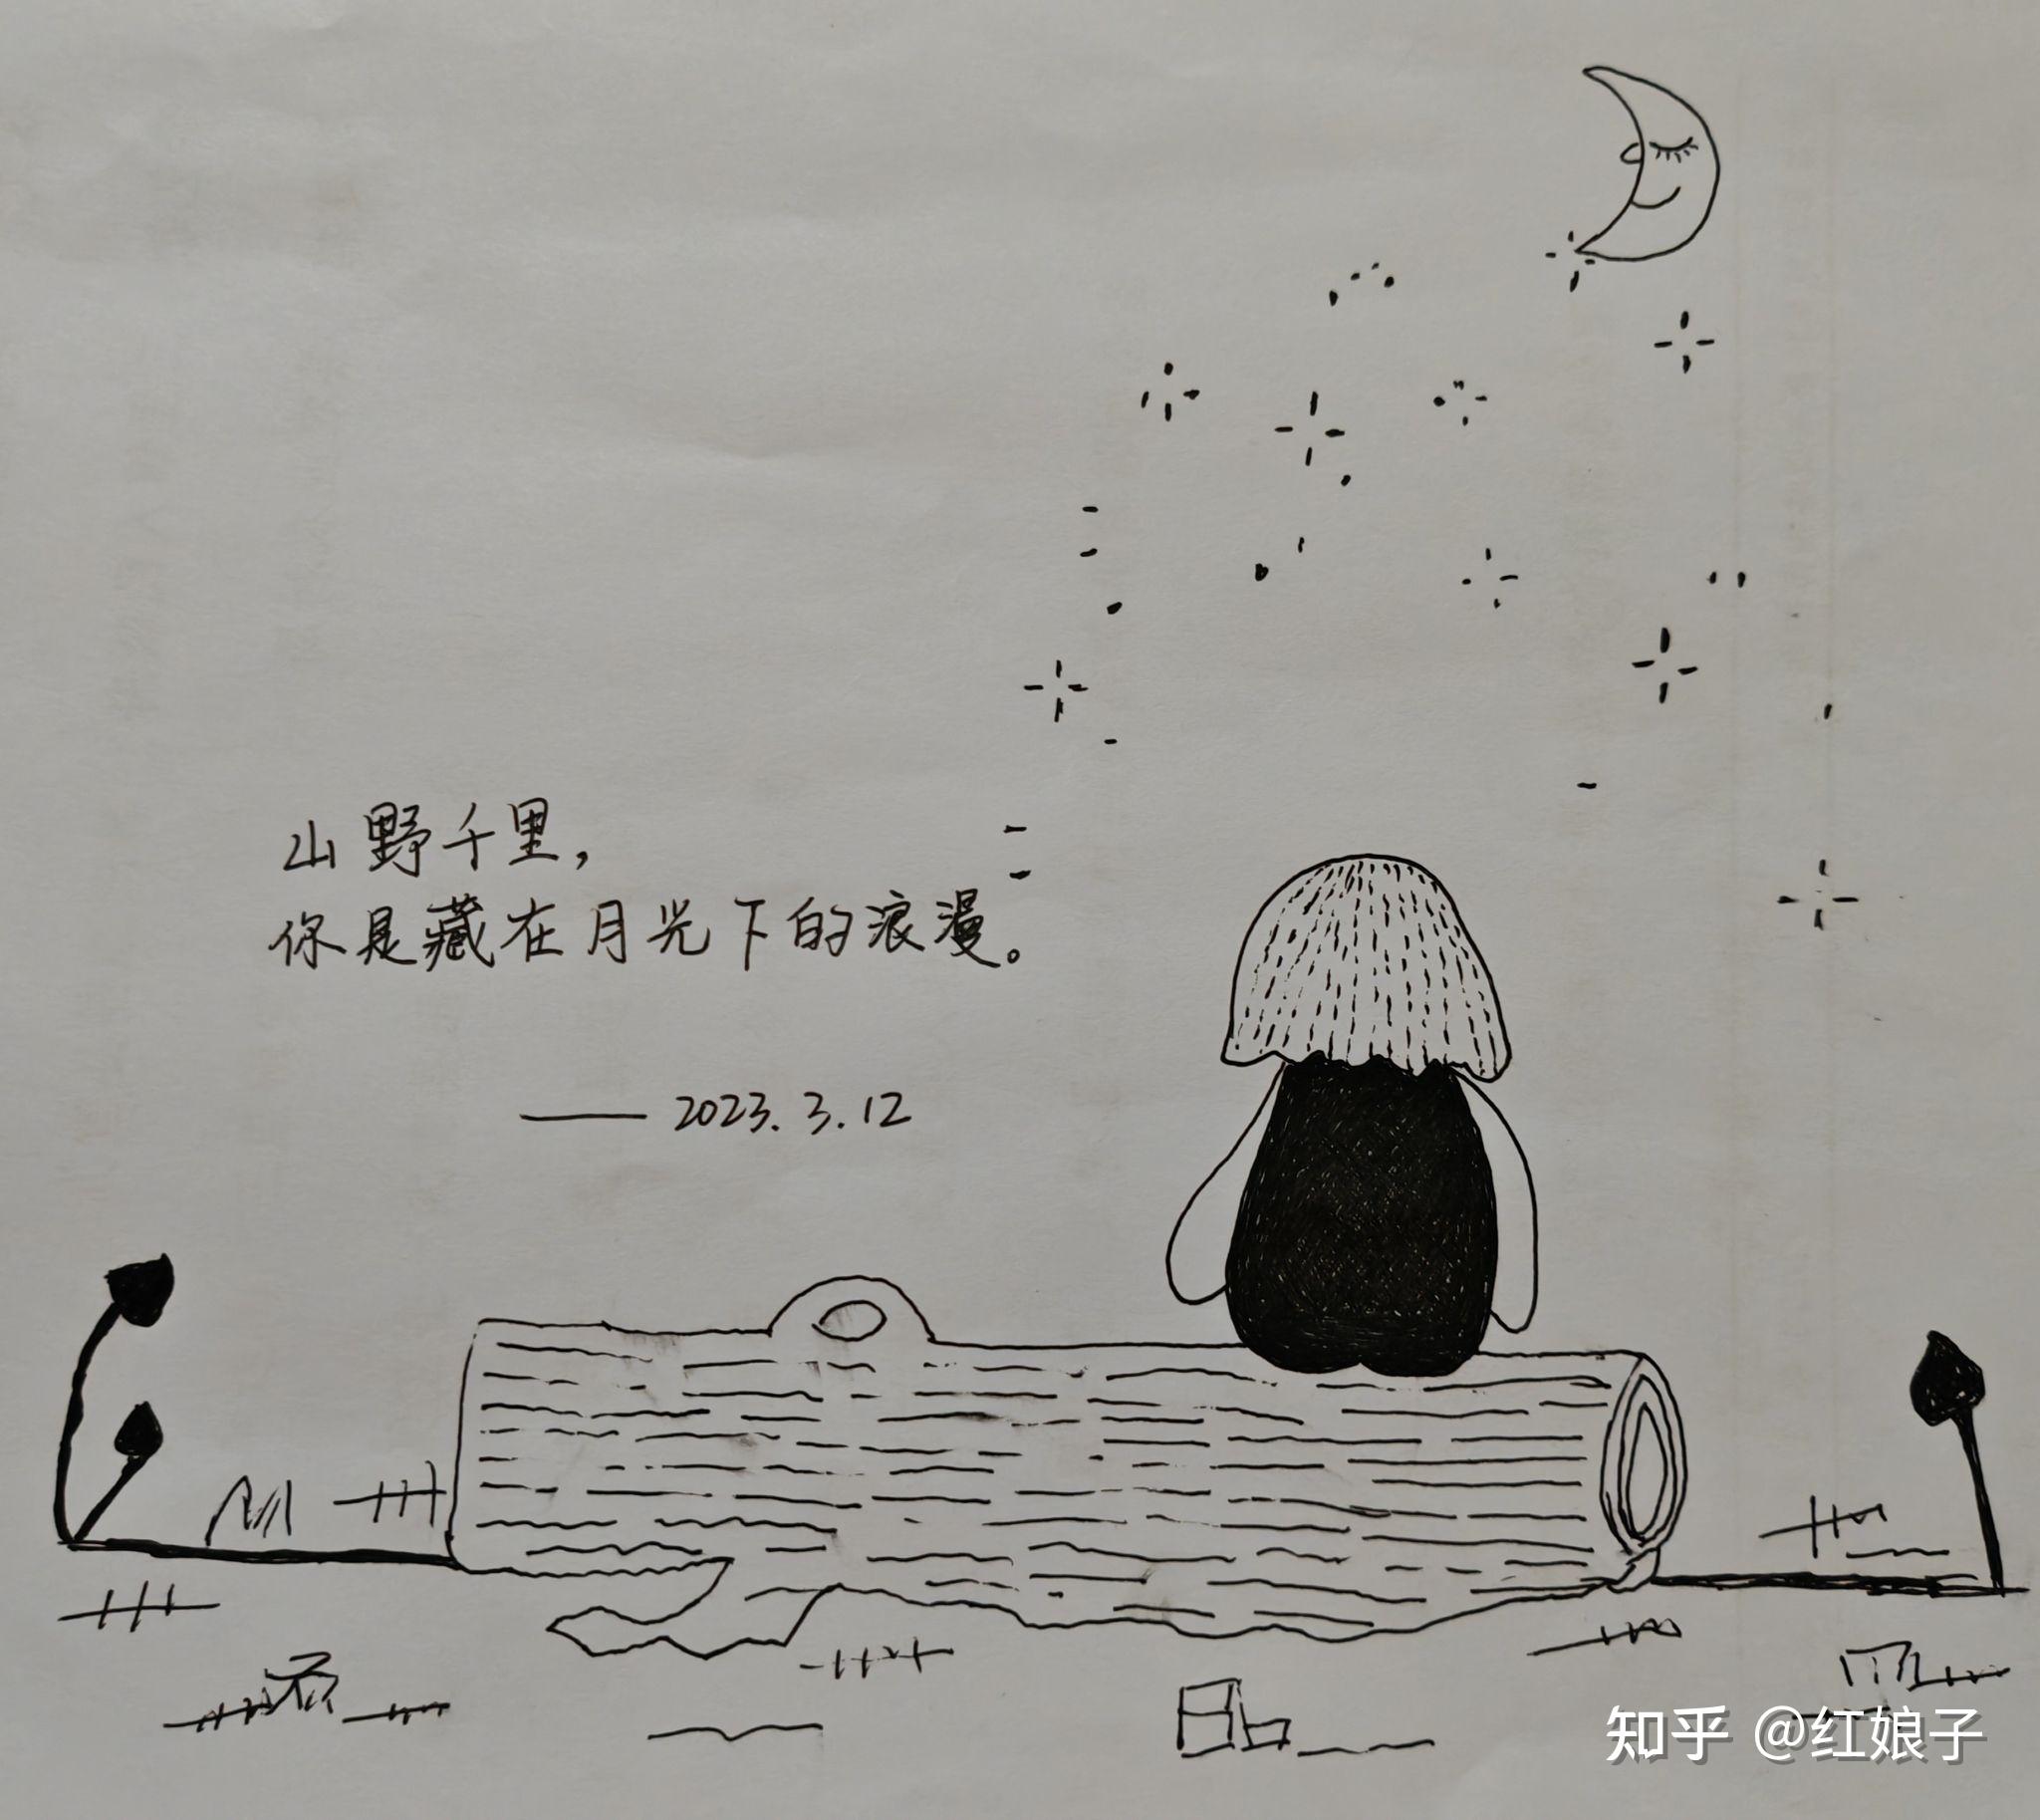 山野千里，
你是藏在月光下的浪漫。
—— 2023.3.12
知乎 @红娘子